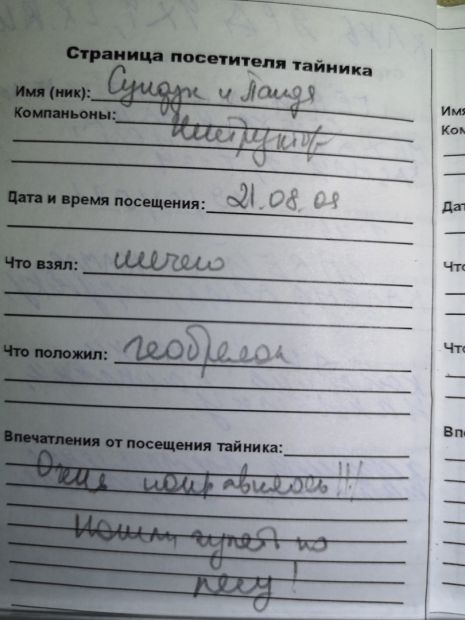 Страница посетителя тайника
Имя (ник): Сундук и Панда
Компаньоны:
Инструктор
Дата и время посещения: 21.08.09
Что взял: ничего
Что положил: геобрелок
Впечатления от посещения тайника:
Очень понравилось!!!
Пошли гулять по
лесу!
Имя
Дат
Что
Что
Впе